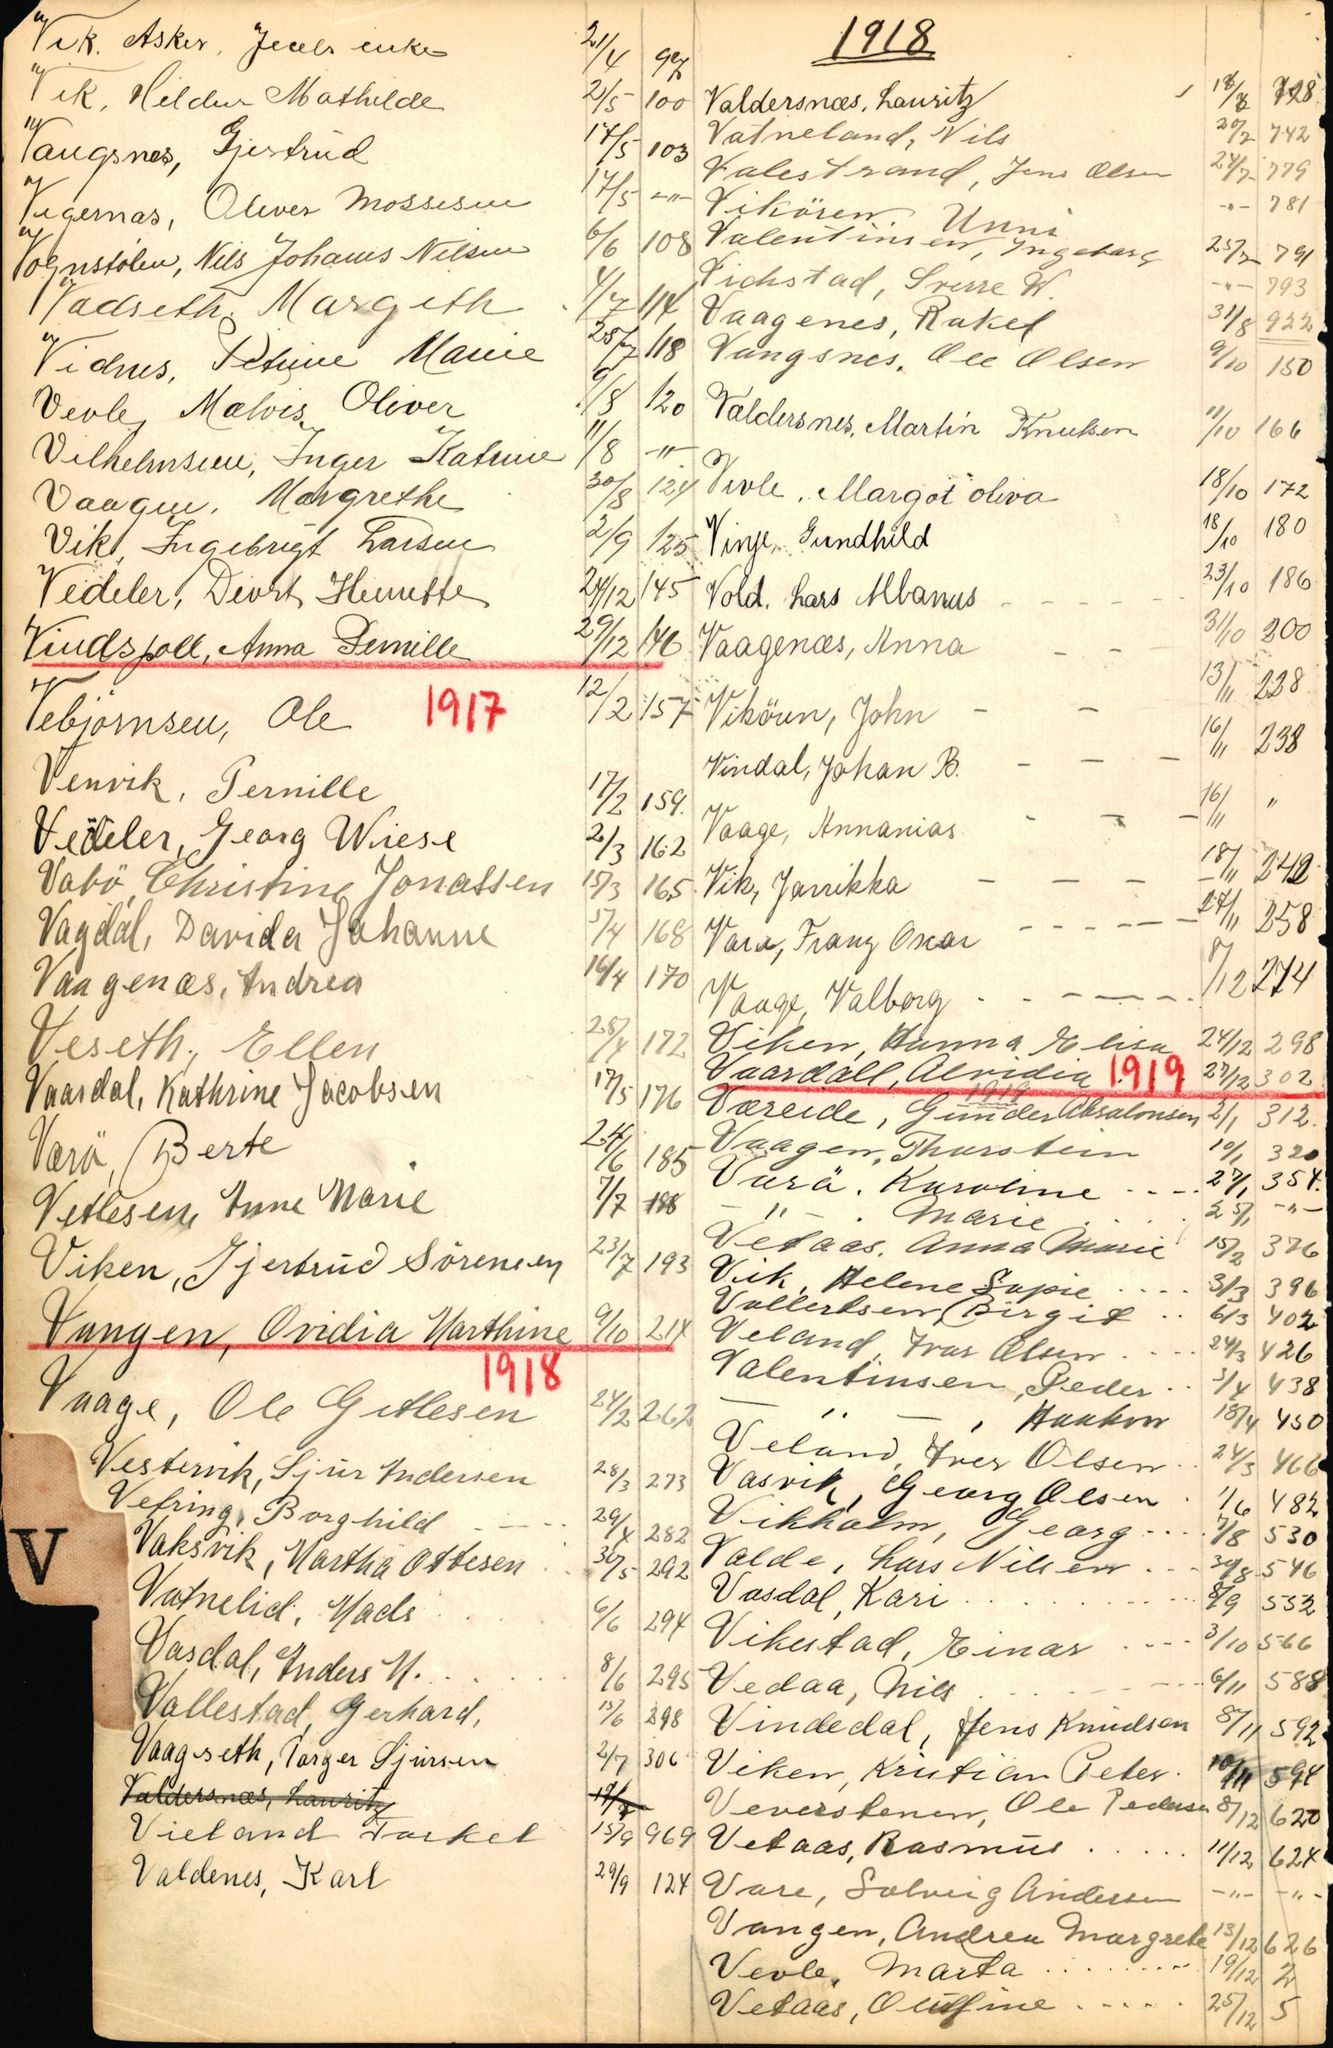 Vik. Asker, 21/4 97
Vik, Hildur Mathilde 2/5 100
Vangsnes, Gjertrud 17/5 103
Vigernas, Oliver Mossesen 17/5 -"-
Vognstölen, Nils Johans Nilsen 6/6 108
Vadseth, Margeth 4/7 114
Vidnes, Petrine Marie 25/7 118
Vevle, Malvis Oliver 9/8 120
Vilhelmsen, Inger Katrine 11/8 -"-
Vaagen, Margrethe 30/8 124
Vik, Ingebrigt Larsen 2/9 125
Vedeler, Devort Henrette 24/12 145
Vindspoll, Anna Pernille 29/12 146
Vebjörnsen, Ole 1917 12/2 157
Venvik, Pernille 17/2 159.
Vedeler, Georg Wiese 2/3 162
Vabö, Christine Jonassen 15/3 165
Vagdal, Davida Johanne 5/4 168
Vaagenæs, Andrea 16/4 170
Veseth, Ellen 28/4 172
Vaardal, Kathrine Jacobsen 17/5 176
Værö, Berte 24/6 185
Vetlesen, Anne Marie 7/7 188
Viken, Gjertrud Sörensen 23/7 193
Vangen, Ovidia Marthine 9/10 214
1918
Vaage, Ole Gitlesen 24/2 262
Vestervik, Sjur Andersen 28/3 273
Vefring, Borghild 29/4 282
Vaksvik, Martha Ottesen 30/5 292
Vatnelid, Mads 6/6 294
Vasdal, Anders M. 8/6 295
Vallestad, Gerhard, 15/6 298
Vaagseth, Torger Sjursen 2/7 306
Valdersnæs, Lauritz 17/7
Vieland Torkel 15/9 969
Valdenes, Karl 29/9 124
V
1918
Valdersnæs, Lauritz 18/7 728
Vatneland, Nils 20/7 742
Valestrand, Jens Olsen 24/7 779
Vikören Unni -"- 781
Valentinsen, Ingeborg 25/7 791
Vichstad, Sverre W. -"- 793
Vaagenes, Rakel 31/8 922
Vangsnes, Ole Olsen 9/10 150
Valdersnes, Martin Knutsen 11/10 166
Vevle, Margot Oliva 18/10 172
Vinje, Gundhild 18/10 180
Vold, Lars Albanus 23/10 186
Vaagenæs, Anna 31/10 200
Vikören, John 13/11 228
Vindal, Johan B. 16/11 238
Vaage, Annanias 16/11 "
Vik, Jarrikka 18/11 242
Vara, Franz Oscar 27/11 258
Vaage, Valborg 8/12 274
Viken, Hanna Elisa 24/12 298
Vaardall, Alvidia 1919 27/12 302
1919
Væreide, Gunder Absalonsen 2/1 312
Vaagen, Thurstein 10/1 320
Varä, Karoline 27/1 354
-"- Marie 25/1 -"-
Vetaas, Anna Marie 15/2 376
Vik, Helene Sopie 3/3 396
Vollertsen, Birgit 6/3 402
Veland, Ivar Olsen 24/3 426
Valentinsen, Peder 3/4 438
— " —, Haakon 18/4 450
Veland, Iver Olsen 24/3 466
Vasvik, Georg Olsen 1/6 482
Vikholm, Georg 7/8 530
Valde, Lars Nilsen 30/8 546
Vasdal, Kari 8/9 552
Vikestad, Einar 3/10 566
Vedaa, Nils 6/11 588
Vindedal, Jens Knudsen 8/11 592
Viken, Kristian Peter 10/11 594
Veverstenen, Ole Pedersen 8/12 620
Vetaas, Rasmus 11/12 624
Vare, Solveig Andersen -"- -"-
Vangen, Andrea Margrete 13/12 626
Vevle, Marta 19/12 2
Vetaas, Olufine 25/12 5